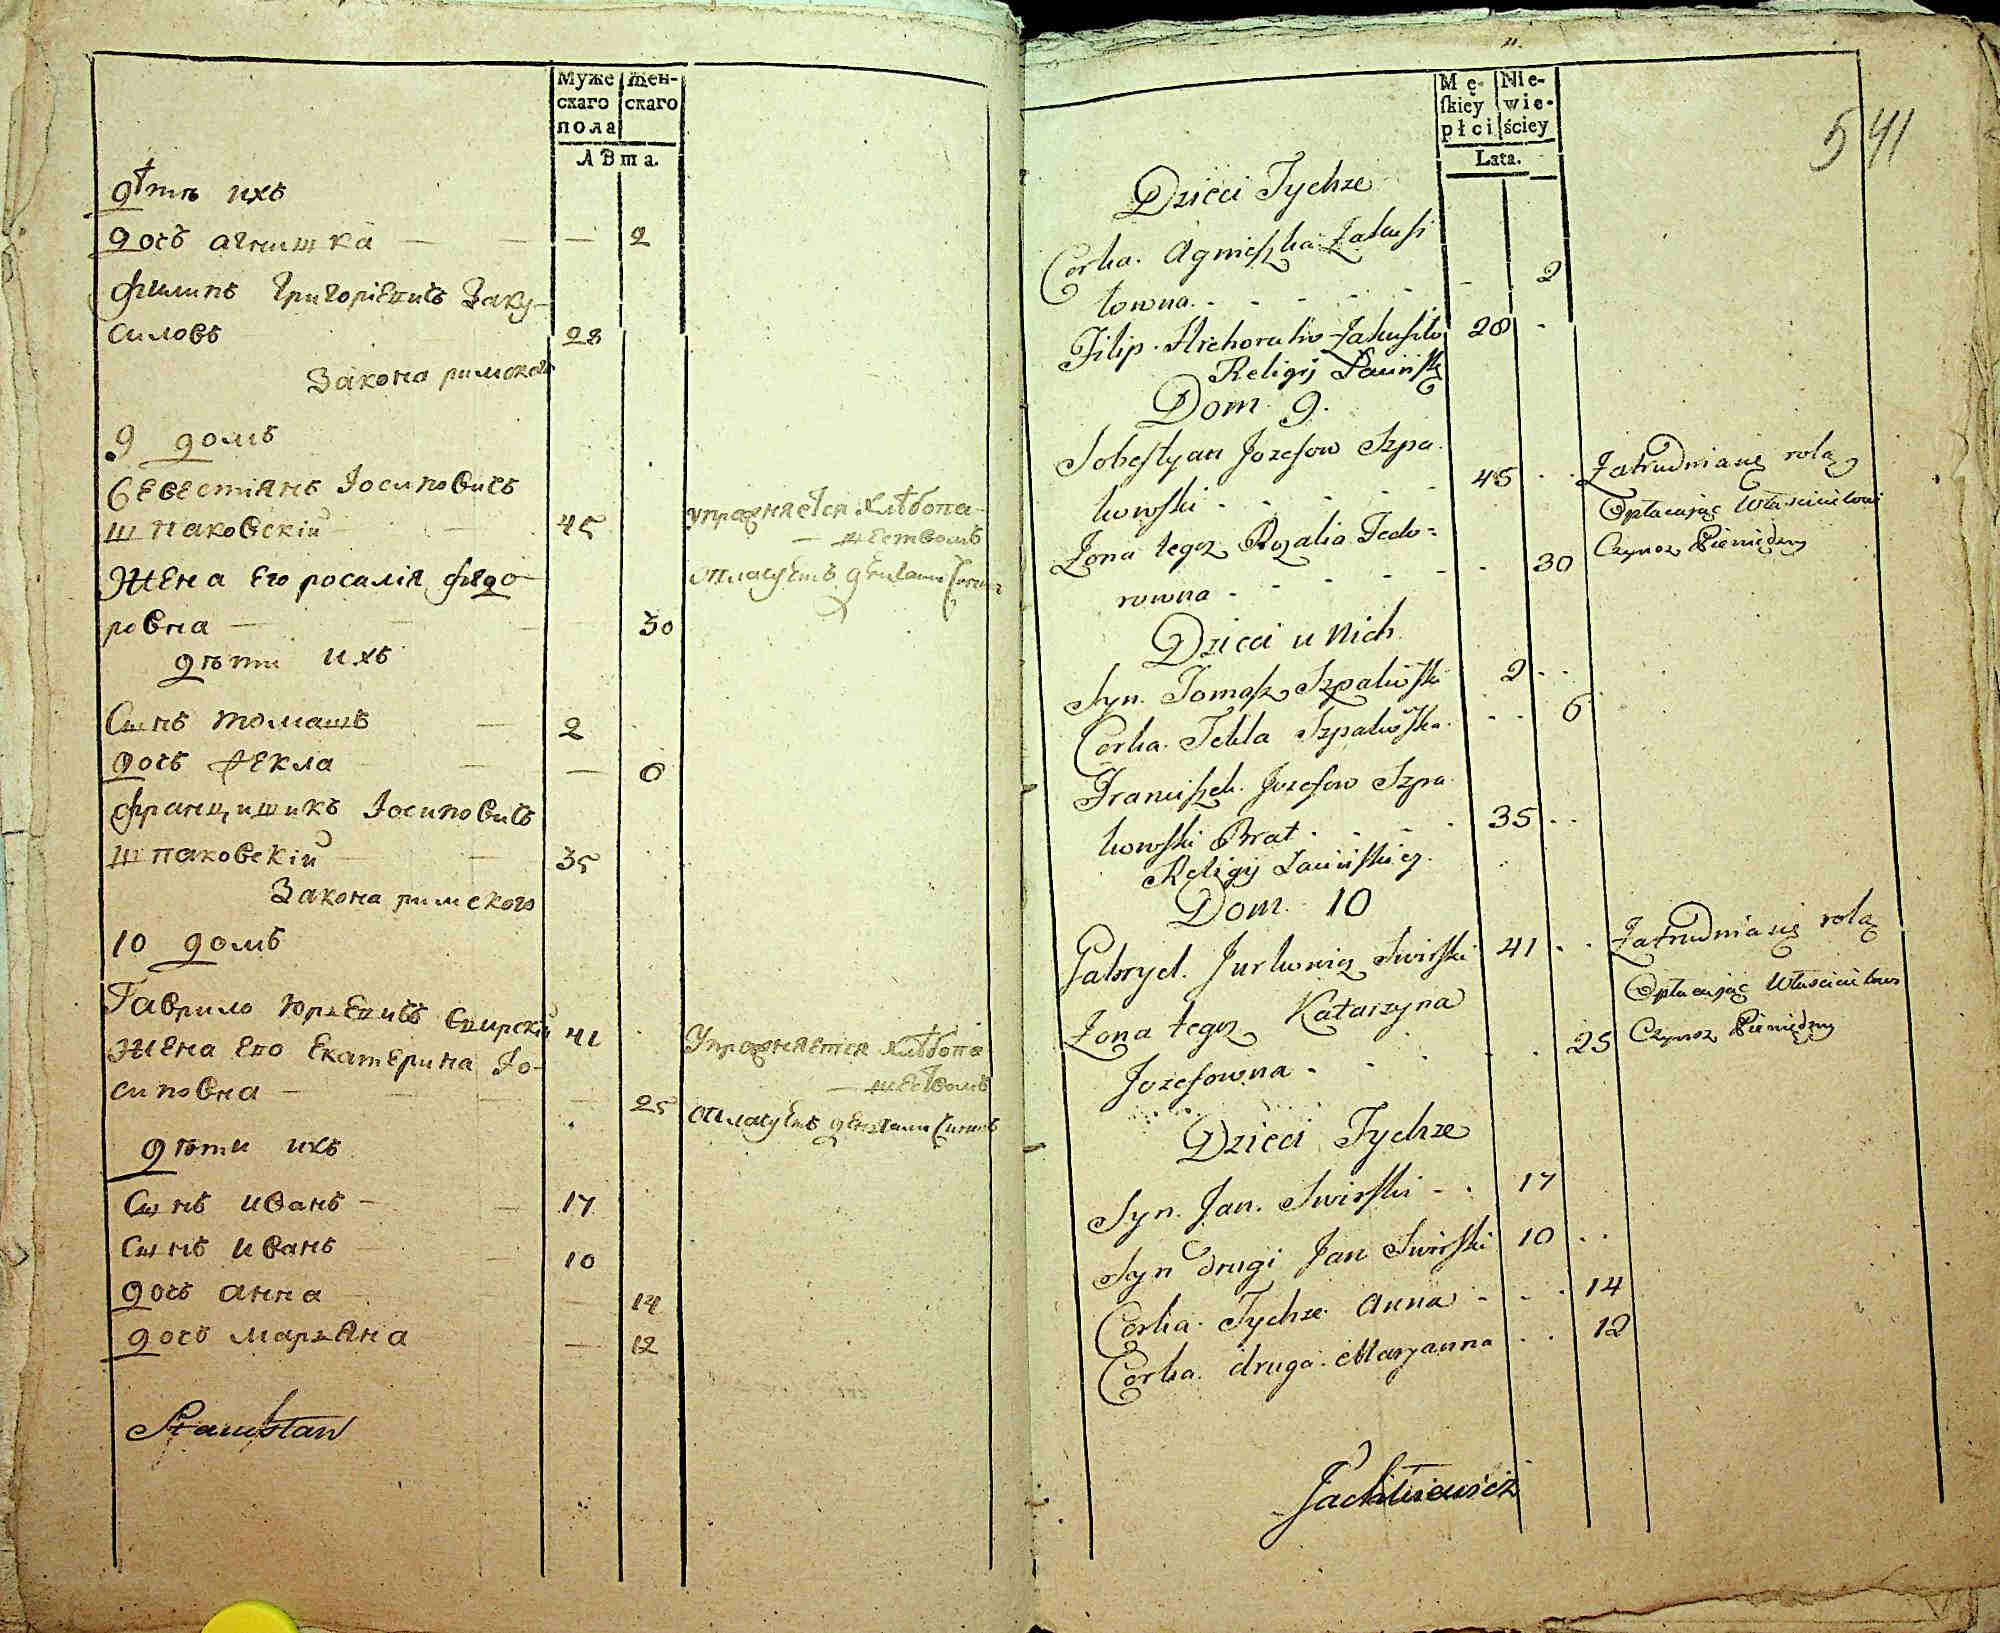 Муже
скаго
пола
Жен-
скаго
ЛѢта.
дѣти ихъ
дочь агнишка 2
филипъ Григоріевичъ Заку-
силовъ 28
Закона римскаго
9 домъ
Севестіянъ Іосиповичъ
шпаковскій 45
упражняется хлѣбопа-
шествомъ
Жена его росалія федо-
ровна 30
дѣти ихъ
Сынъ томашъ 2
дочь фекла 6
францишикъ Іосиповичъ
шпаковскій 35
Закона римского
10 домъ
Гаврило Юрьевичъ Свирскій 41
Упражняется хлѣбопа
шествомъ
Жена его Екатерина Іо-
сиповна 25
дѣти ихъ
Сынъ иванъ 17
Сынъ иванъ 10
дочь анна 14
дочь марьяна 12
Stanisław
Mę-
skiey
płci
Nie-
wie-
ściey
Lata.
541
Dzieci Tychże
Corka Agnieszka Zakusi
łowna 2
Filip Zakusiło 28
Religij Łacińsk
Dom 9.
Sobestyan Jozefow Szpa
kowski 45
Zatrudnia się rolą
Opłacając Właścicielowi
Czynsz Pieniędzy
Żona tegoż Rozalia Fedo=
rowna 30
Dzieci u Nich
Syn Tomasz Szpakowski 2
Corka Tekla Szpakowska 6
Franciszek Jozefow Szpa
kowski Brat 35
Religij Łacińskiey
Dom 10
Gabryel Jurkowicz Swirski 41
Zatrudnia się rolą
Opłacając Właścicielowi
Czynsz Pieniędzy
Żona tegoż Katarzyna
Jozefowna 25
Dzieci Tychże
Syn Jan Swirski 17
Syn drugi Jan Swirski 10
Corka Tychże Anna 14
Corka druga Maryanna 12